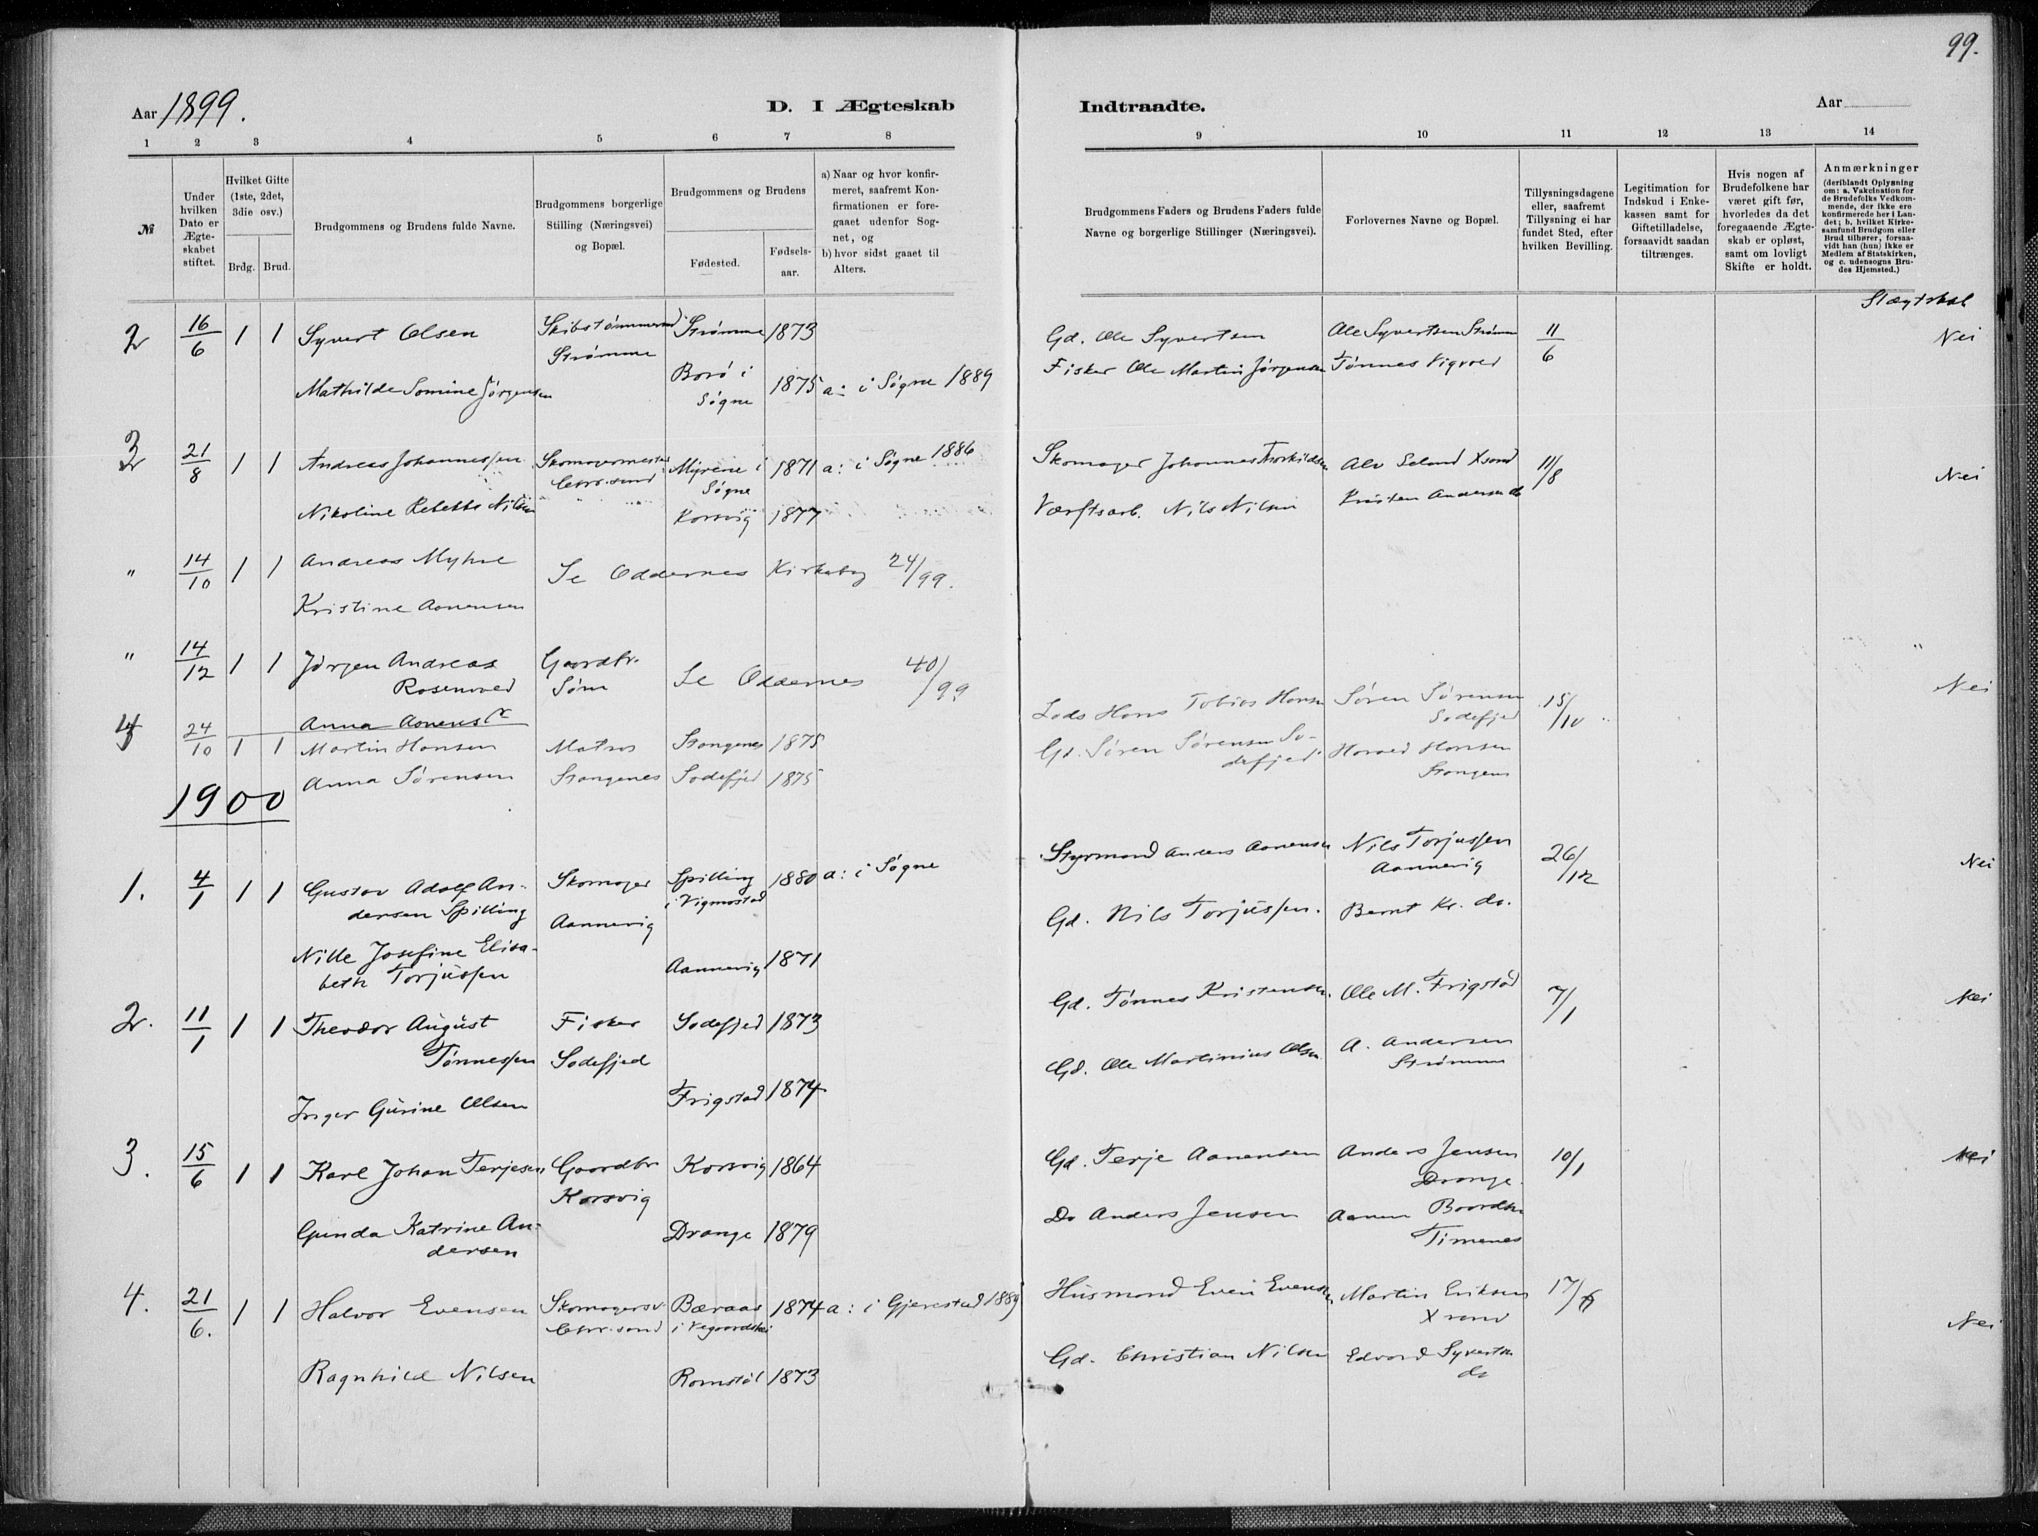 99.
Aar 1899. D. I Ægteskab Indtraadte. Aar
1 2 3 4 5 6 7 8 9 10 11 12 13 14
№
Under hvilken Dato er Ægteskabet stiftet.
Hvilket Gifte (1ste, 2det, 3die osv.)
Brdg. Brud.
Brudgommens og Brudens fulde Navne.
Brudgommens borgerlige Stilling (Næringsvei) og Bopæl.
Brudgommens og Brudens
Fødested. Fødselsaar.
a) Naar og hvor konfirmeret, saafremt Konfirmationen er foregaaet udenfor Sognet, og
b) hvor sidst gaaet til Alters.
Brudgommens Faders og Brudens Faders fulde Navne og borgerlige Stillinger (Næringsvei).
Forlovernes Navne og Bopæl.
Tillysningsdagene eller, saafremt Tillysning ei har fundet Sted, efter hvilken Bevilling.
Legitimation for Indskud i Enkekassen samt for Giftetilladelse, forsaavidt saadan tiltrænges.
Hvis nogen af Brudefolkene har været gift før, hvorledes da det foregaaende Ægteskab er opløst, samt om lovligt Skifte er holdt.
Anmærkninger
(deriblandt Oplysning om: a. Vakcination for de Brudefolks Vedkommende, der ikke ere konfirmerede her i Landet; b. hvilket Kirkesamfund Brudgom eller Brud tilhører, forsaavidt han (hun) ikke er Medlem af Statskirken, og c. udensogns Brudes Hjemsted.)
Slægtskab
2 16/6 1 1 Syvert Olsen Skibstømmermd. Strømme 1873 Gd. Ole Syvertsen Ole Syvertsen Strømme 11/6 Nei
Strømme
Mathilde Somine Jørgensen Borø i Søgne 1875 a: i Søgne 1889 Fisker Ole Martin Jørgensen Tønnes Vigvold
3 21/8 1 1 Andreas Johannessen Skomagermester Myrene i Søgne 1871 a: i Søgne 1886 Skomager Johannes Torkildsen Alv Eeland Xsand 11/8 Nei
Chr.sand
Nikoline Rebekka Nilsen Korsvig 1877 Værftsarb. Nils Nilsen Kristen Andersen do
" 14/10 1 1 Andreas Myhre Se Oddernes Kirkebog 24/99.
Kristine Aanensen
" 14/12 1 1 Jørgen Andreas Gaardbr. Se Oddernes 40/99 "
Rosenvold Søm
Anna Aanensdr
4 24/10 1 1 Martin Hansen Matros Stangenes 1875 Lods Hans Tobias Hansen Søren Sørensen Sodefjed 15/10 Nei
Anna Sørensen Stangenes Sodefjed 1875 Gd. Søren Sørensen Sodefjed Harald Hansen Stangenes
1900
1. 4/1 1 1 Gustav Adolf An- Skomager Spilling 1880 a: i Søgne Styrmand Anders Aanensen Nils Torjussen 26/12 Nei
dersen Spilling Aannevig i Vigmostad Aannevig
Nille Josefine Elisa- Aannevig 1871 Gd. Nils Torjussen. Bernt Kr. do.
beth Torjussen
2. 11/1 1 1 Theodor August Fisker Sodefjed 1873 Gd. Tønnes Kristensen. Ole M. Frigstad 7/1 Nei
Tønnessen Sodefjed
Inger Gurine Olsen Frigstad 1874 Gd. Ole Martinius Olsen A. Andersen
Strømme
3. 15/6 1 1 Karl Johan Terjesen Gaardbr Korsvig 1864 Gd. Terje Aanensen Anders Jensen 10/1 Nei
Korsvig Drange.
Gunda Katrine An- Drange 1879 Do Anders Jensen Aanen Baardsen
dersen Timenes
4. 21/6. 1 1 Halvor Evensen Skomagersv. Bæraas 1874 a: i Gjerestad 1889 Husmand Even Evensen Martin Eriksen 17/6 Nei
Chr.sand i Vegaardshei Xsand
Ragnhild Nilsen Romstøl 1873 Gd. Christian Nilsen Edvard Syvertsen
do